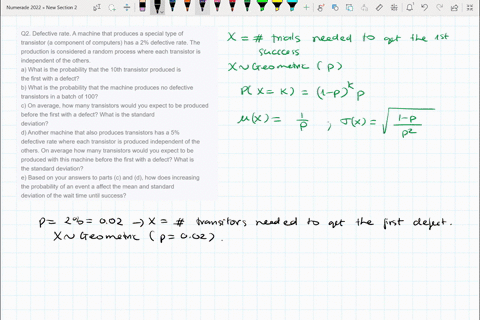 Numerade 2022 » New Section 2
Q2. Defective rate. A machine that produces a special type of
transistor (a component of computers) has a 2% defective rate. The
production is considered a random process where each transistor is
independent of the others.
a) What is the probability that the 10th transistor produced is
the first with a defect?
b) What is the probability that the machine produces no defective
transistors in a batch of 100?
c) On average, how many transistors would you expect to be produced
before the first with a defect? What is the standard
deviation?
d) Another machine that also produces transistors has a 5%
defective rate where each transistor is produced independent of the
others. On average how many transistors would you expect to be
produced with this machine before the first with a defect? What is
the standard deviation?
e) Based on your answers to parts (c) and (d), how does increasing
the probability of an event a affect the mean and standard
deviation of the wait time until success?
X = # trials needed to get the 1st
success
X ~ Geometric (p)
P(X = K) = (1-p)^K p
μ(X) = 1/p ; σ(X) = √((1-p)/p²)
p = 2% = 0.02 → X = # transitors needed to get the first defect.
X ~ Geometric (p = 0.02).